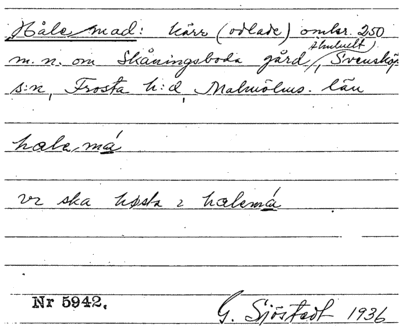 Håle mad: kärr (odlade) omkr. 250
m. n. om Skåningsboda gård, Svensköps
s:n, Frosta h:d, Malmöhus län
halemá
vɪ ska høsta ɪ halemá
Nr 5942. G. Sjöstedt 1936